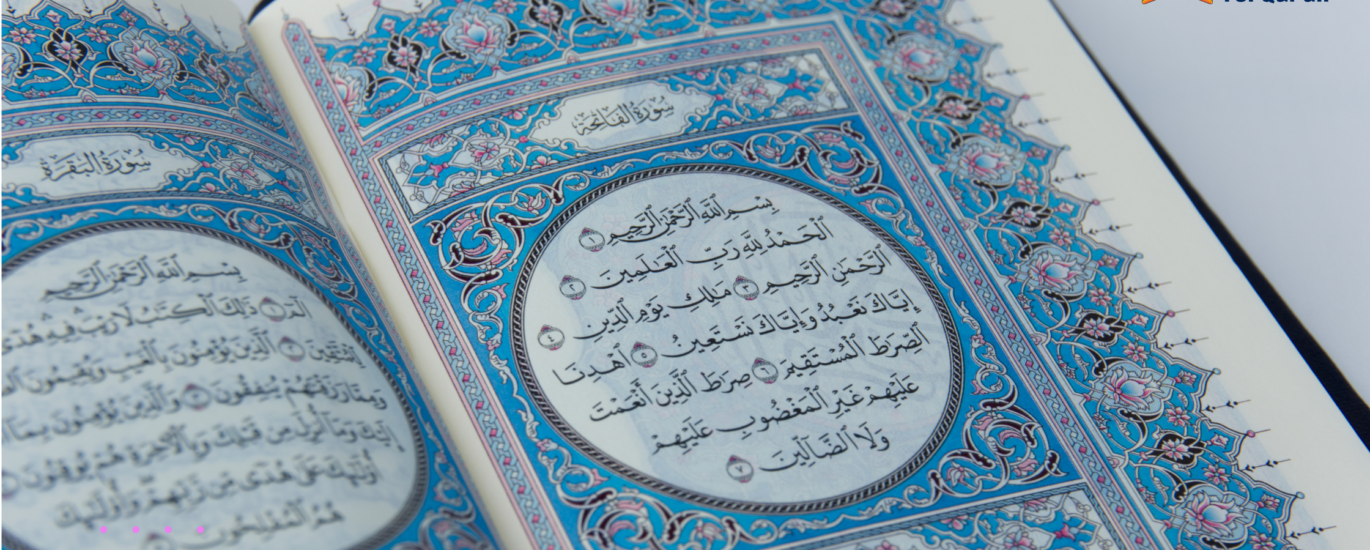 سُورَةُ الفَاتِحَة
بِسْمِ ٱللَّهِ ٱلرَّحْمَٰنِ ٱلرَّحِيمِ ١
ٱلْحَمْدُ لِلَّهِ رَبِّ ٱلْعَٰلَمِينَ ٢
ٱلرَّحْمَٰنِ ٱلرَّحِيمِ ٣ مَٰلِكِ يَوْمِ ٱلدِّينِ ٤
إِيَّاكَ نَعْبُدُ وَإِيَّاكَ نَسْتَعِينُ ٥ ٱهْدِنَا
ٱلصِّرَٰطَ ٱلْمُسْتَقِيمَ ٦ صِرَٰطَ ٱلَّذِينَ أَنْعَمْتَ
عَلَيْهِمْ غَيْرِ ٱلْمَغْضُوبِ عَلَيْهِمْ
وَلَا ٱلضَّآلِّينَ ٧
سُورَةُ البَقَرَة
بِسْمِ ٱللَّهِ ٱلرَّحْمَٰنِ ٱلرَّحِيمِ
الٓمٓ ١ ذَٰلِكَ ٱلْكِتَٰبُ لَا رَيْبَ فِيهِ هُدًى
لِّلْمُتَّقِينَ ٢ ٱلَّذِينَ يُؤْمِنُونَ بِٱلْغَيْبِ وَيُقِيمُونَ
وَمِمَّا رَزَقْنَٰهُمْ يُنفِقُونَ ٣ وَٱلَّذِينَ يُؤْمِنُونَ بِمَآ
إِلَيْكَ وَمَآ أُنزِلَ مِن قَبْلِكَ وَبِٱلْءَاخِرَةِ هُمْ يُوقِنُونَ
أُو۟لَٰٓئِكَ عَلَىٰ هُدًى مِّن رَّبِّهِمْ وَأُو۟لَٰٓئِكَ
هُمُ ٱلْمُفْلِحُونَ